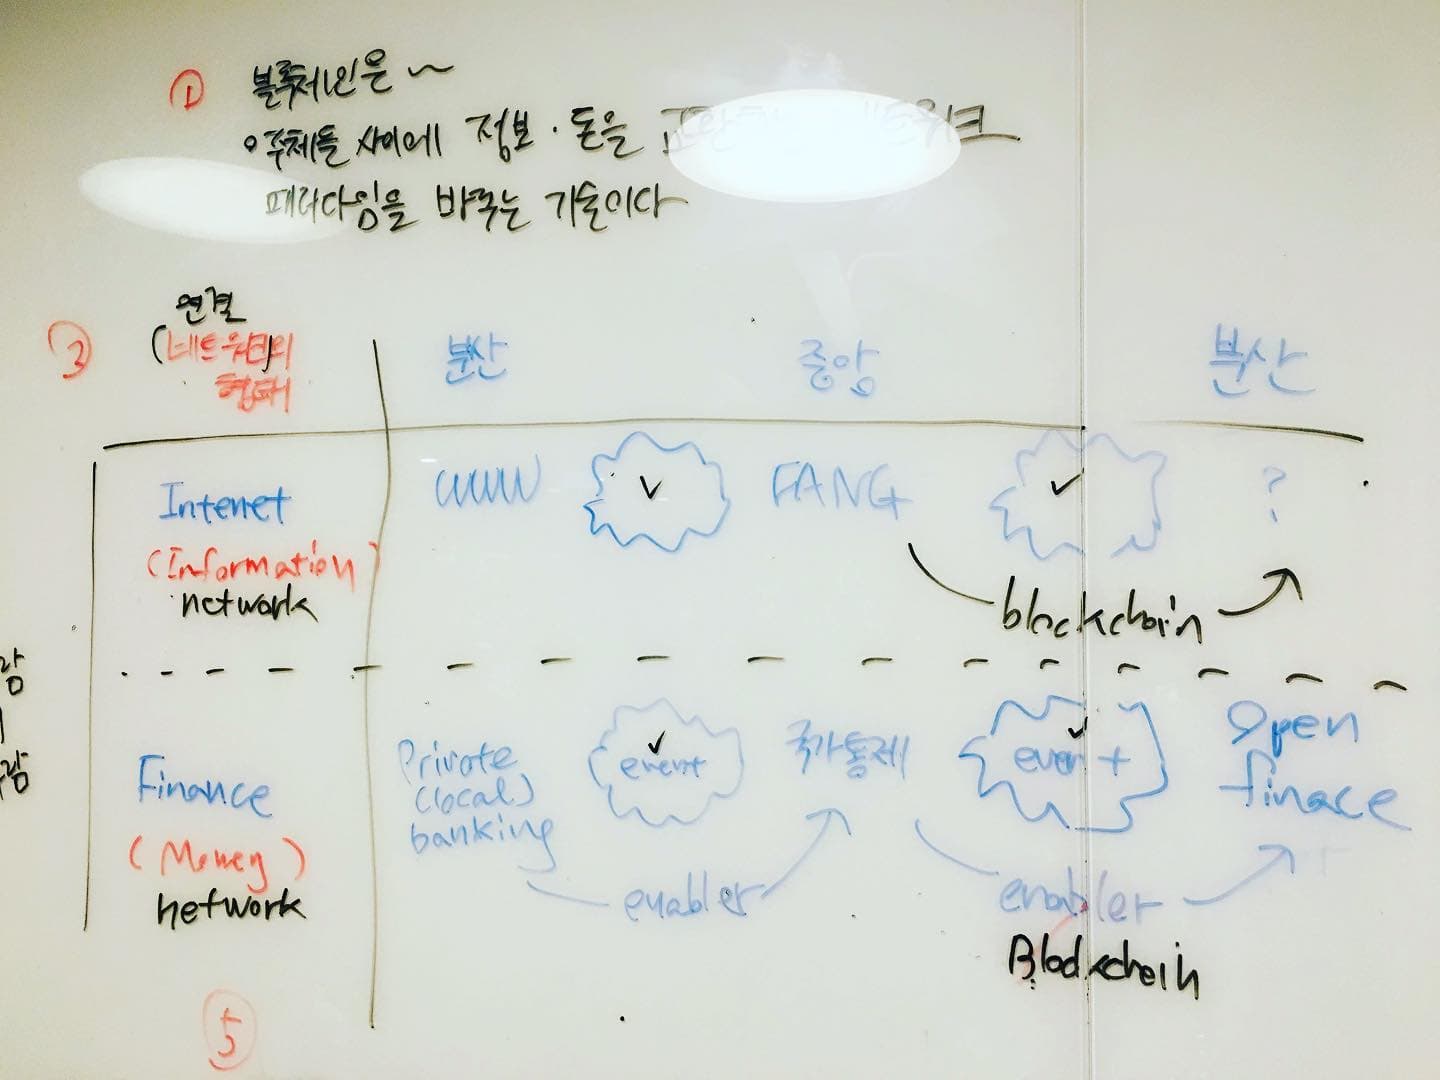 ① 블록체인은 ~
주체들 사이에 정보·돈을
패러다임을 바꾸는 기술이다
③
연결
(네트워크의
형태
분산 중앙 분산
Intenet WWW ✓ FANG ✓ ?
(Information)
network
blockchain
Finance
(Money)
network
Private
(local)
banking
event ✓
국가통제
event ✓
Open
finace
enabler
enabler
Blockchein
⑤